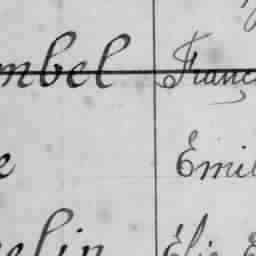 mbel Franc
e Emil
elin Élie E